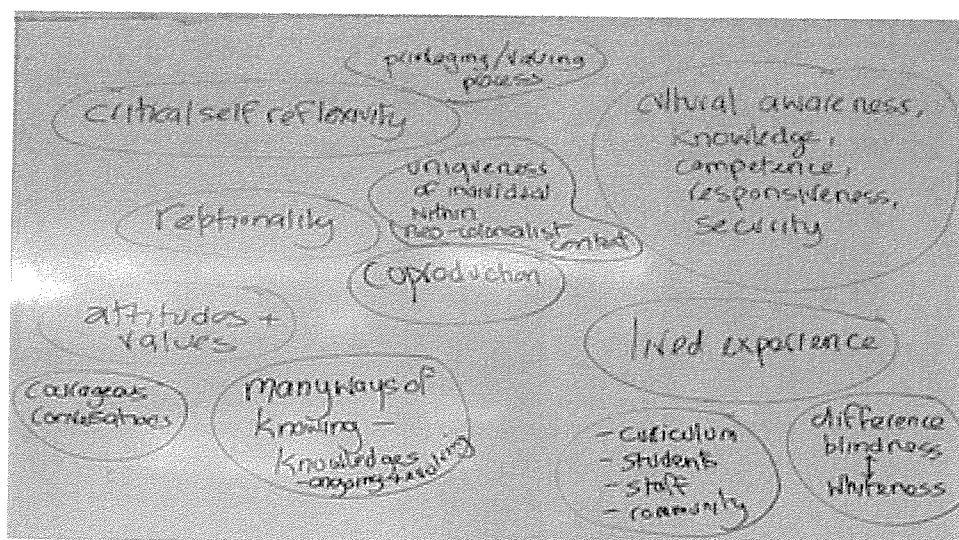 privileging/valuing
process
critical self reflexivity
cultural awareness,
knowledge,
competence,
responsiveness,
security
uniqueness
of individual
within
neo-colonialist
context
relationality
coproduction
attitudes +
values
lived experience
courageous
conversations
many ways of
knowing -
knowledges
- ongoing + evolving
- curiculum
- students
- staff
- community
difference
blindness
whiteness